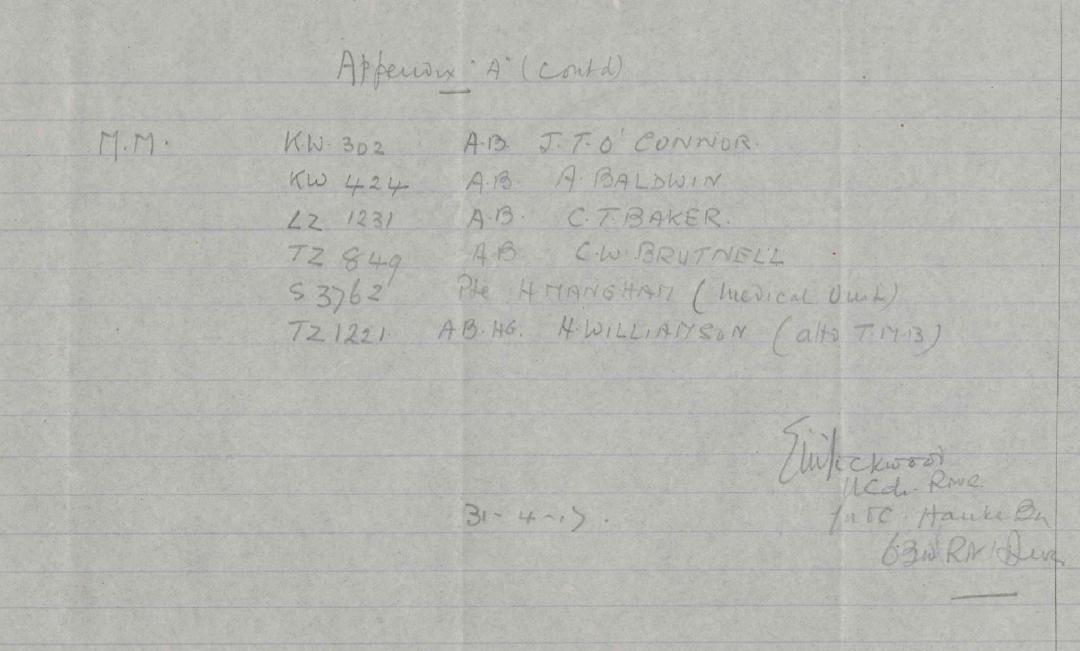 Appendix "A" (Contd)
M.M. KW. 302 A.B. J.T. O'CONNOR.
KW 424 A.B. A. BALDWIN
LZ 1231 A.B. C.T. BAKER.
TZ 849 AB C.W. BRUTNELL
S 3762 Pte H MANGHAM (Medical Unit)
TZ 1221. A.B. HG. H. WILLIAMSON (atto T.M.B)
Lockwood
Lt Cdr. RNVR.
31-4-17.
Hawke Bn
63rd RN Divn